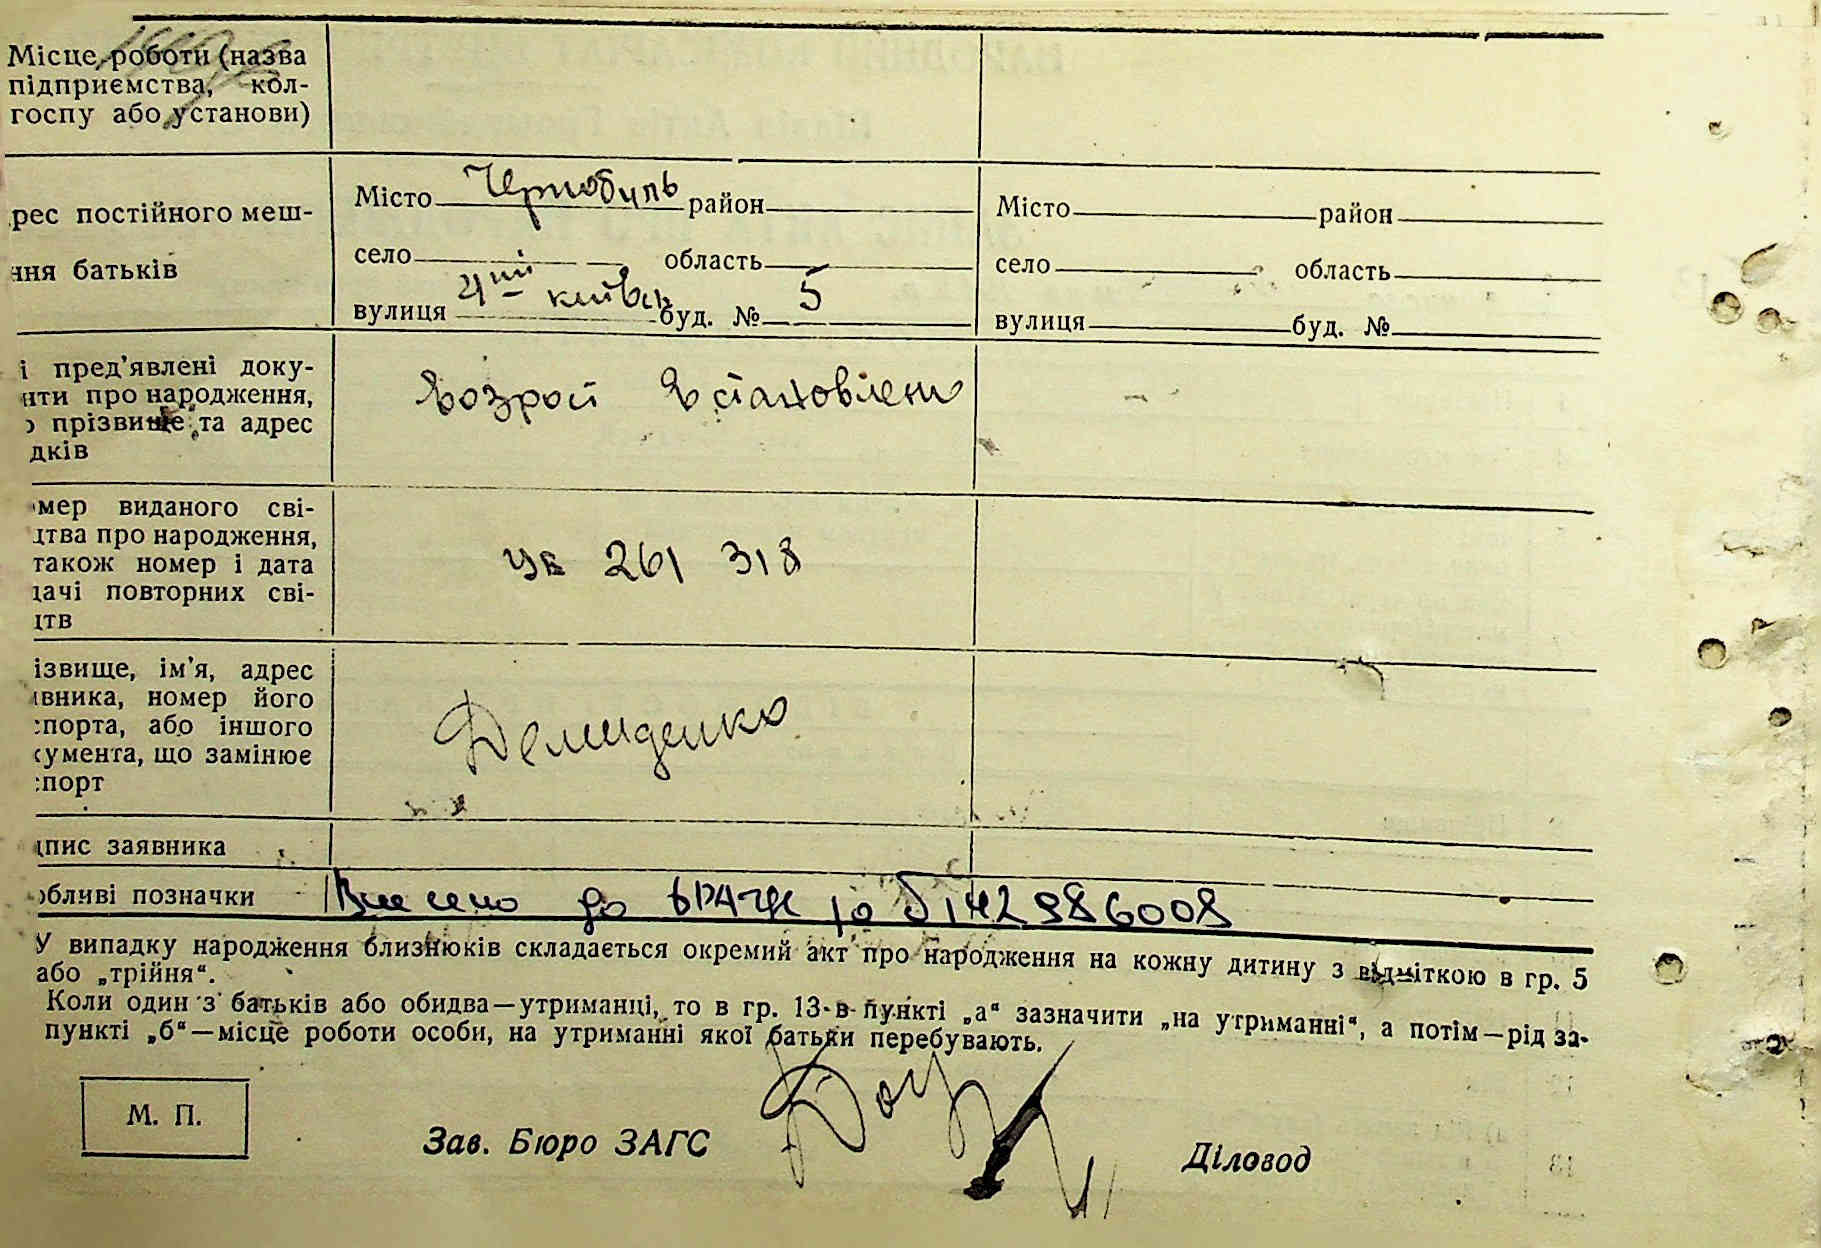 Місце роботи (назва
підприємства, кол-
госпу або установи)
рес постійного меш-
ння батьків
Місто Чернобиль район
село область
вулиця 4ий київськ буд. № 5
Місто район
село область
вулиця буд. №
і пред'явлені доку-
нти про народження,
о прізвище та адрес
дків
возрост встановлено
мер виданого сві-
цтва про народження,
також номер і дата
дачі повторних сві-
цтв
261 318
ізвище, ім'я, адрес
явника, номер його
спорта, або іншого
кумента, що замінює
спорт
Демиденко
дпис заявника
обливі позначки
Внесено до ДРАЦС
У випадку народження близнюків складається окремий акт про народження на кожну дитину з відміткою в гр. 5
або „трійня“.
Коли один з батьків або обидва—утриманці, то в гр. 13 в пункті „а“ зазначити „на утриманні“, а потім—рід за-
пункті „б“—місце роботи особи, на утриманні якої батьки перебувають.
М. П.
Зав. Бюро ЗАГС
Діловод